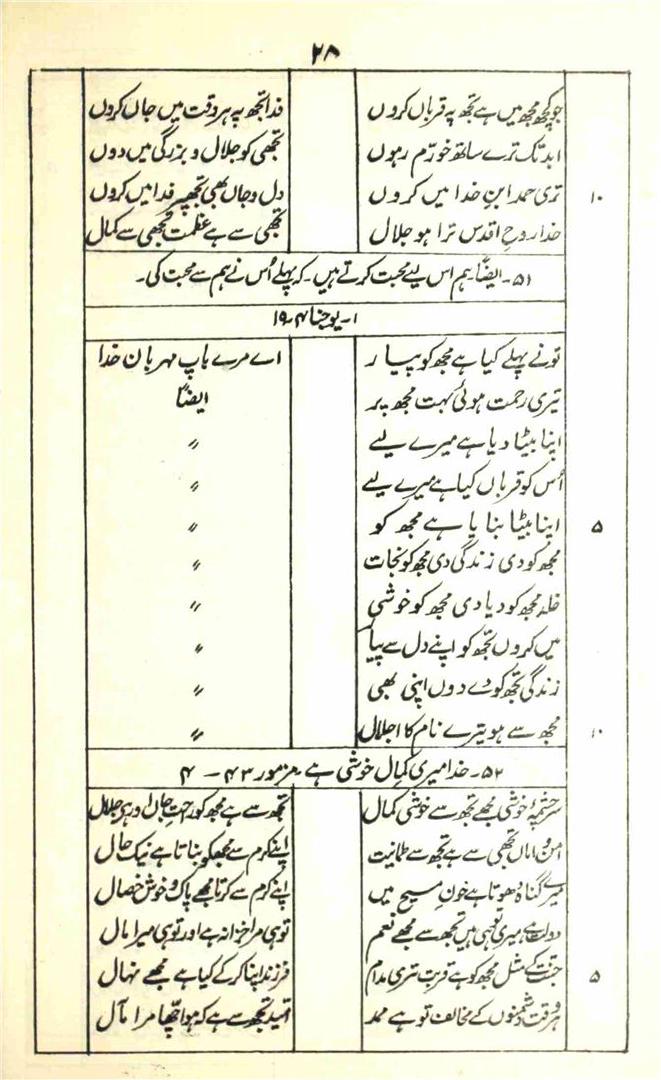 ۲۸
جو کچھ مجھ میں ہے تجھ پہ قرباں کروں فدا تجھ پہ ہر وقت میں جاں کروں
ابد تک ترے ساتھ خورّم رہوں تجھی کو جلال و بزرگی میں دوں
۱۰ تری حمد ابنِ خدا میں کروں دل و جاں بھی تجھپر فدا میں کروں
خدا روحِ اقدس ترا ہو جلال تجھی سے ہے عظمت تجھی سے کمال
۵۱۔ ایضاً ہم اس لیے محبت کرتے ہیں۔ کہ پہلے اُس نے ہم سے محبت کی۔
۱۔ یوحنا ۴۔۱۹
تو نے پہلے کیا ہے مجھ کو پیار اے مرے باپ مہربان خدا
تیری رحمت ہوئی بہت مجھ پر ایضاً
اپنا بیٹا دیا ہے میرے لیے 〃
اُس کو قرباں کیا ہے میرے لیے 〃
۵ اپنا بیٹا بنایا ہے مجھ کو 〃
مجھ کو دی زندگی دی مجھ کو نجات 〃
خلد مجھ کو دیا دی مجھ کو خوشی 〃
میں کروں تجھ کو اپنے دل سے پیار 〃
زندگی تجھ کو دے دوں اپنی بھی 〃
۱۰ مجھ سے ہو یترے نام کا اجلال 〃
۵۲۔ خدا میری کمال خوشی ہے۔ مزمور ۴۳ – ۴
سرچشمۂ خوشی مجھے تجھ سے خوشی کمال تجھ سے ہے مجھ کو راحتِ جاں اور ہی جلال
امن و اماں تجھی سے ہے تجھ سے طمانیت اپنے کرم سے مجھکو بناتا ہے نیک حال
میرے گناہ دھوتا ہے خونِ مسیح میں اپنے کرم سے کرتا مجھے پاک و خوش خصال
دولت ہے میری توہی ہیں تجھ سے مجھے نعم توہی مرا خزانہ ہے اور توہی میرا مال
۵ جنت کے مثل مجھ کو ہے قربت تری مدام فرزند اپنا کر کے کیا ہے مجھے نہال
ہر وقت دشمنوں کے مخالف تو ہے ممد امید تجھ سے ہے کہ ہو اچھا مرا مآل